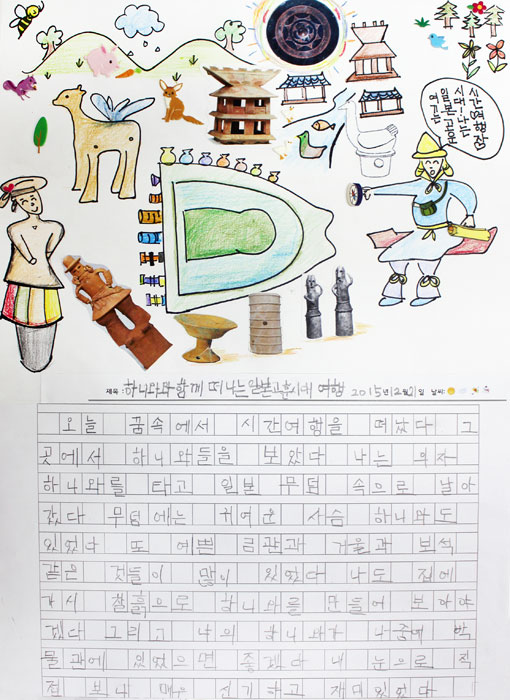 시간여행자
시대! 나는
일본고훈
여기는
제목 : 하니와와 함께 떠나는 일본고훈시대 여행 2015년 12월 21일 날씨:
오늘 꿈속에서 시간여행을 떠났다 그
곳에서 하니와들을 보았다 나는 의자
하니와를 타고 일본 무덤 속으로 날아
갔다 무덤에는 귀여운 사슴 하니와도
있었다 또 예쁜 금관과 거울과 보석
같은 것들이 많이 있었다 나도 집에
가서 찰흙으로 하니와를 만들어 보아야
겠다 그리고 나의 하니와가 나중에 박
물관에 있었으면 좋겠다 내 눈으로 직
접 보니 매우 신기하고 재미있었다